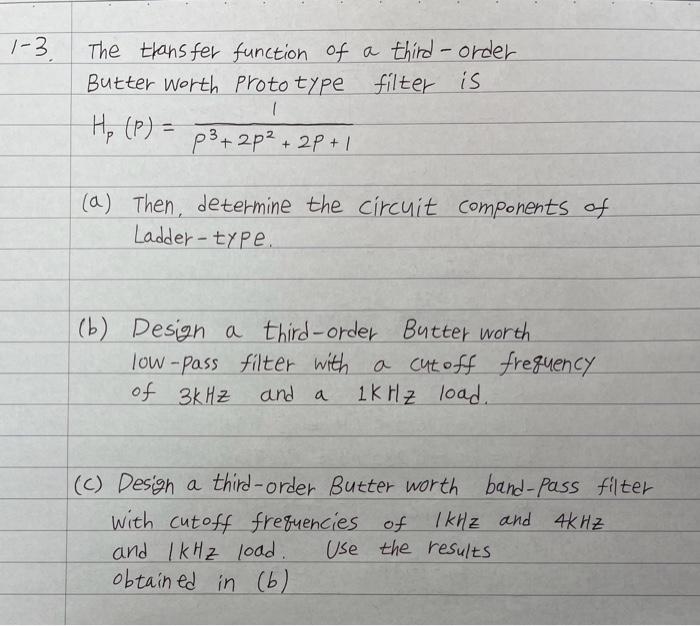 1-3. The transfer function of a third-order
Butter worth Proto type filter is
Hp (P) = 1 / P³ + 2P² + 2P + 1
(a) Then, determine the circuit components of
Ladder-type.
(b) Design a third-order Butter worth
low-pass filter with a cutoff frequency
of 3kHz and a 1KHz load.
(c) Design a third-order Butter worth band-Pass filter
with cutoff frequencies of 1kHz and 4kHz
and 1kHz load. Use the results
obtained in (b)